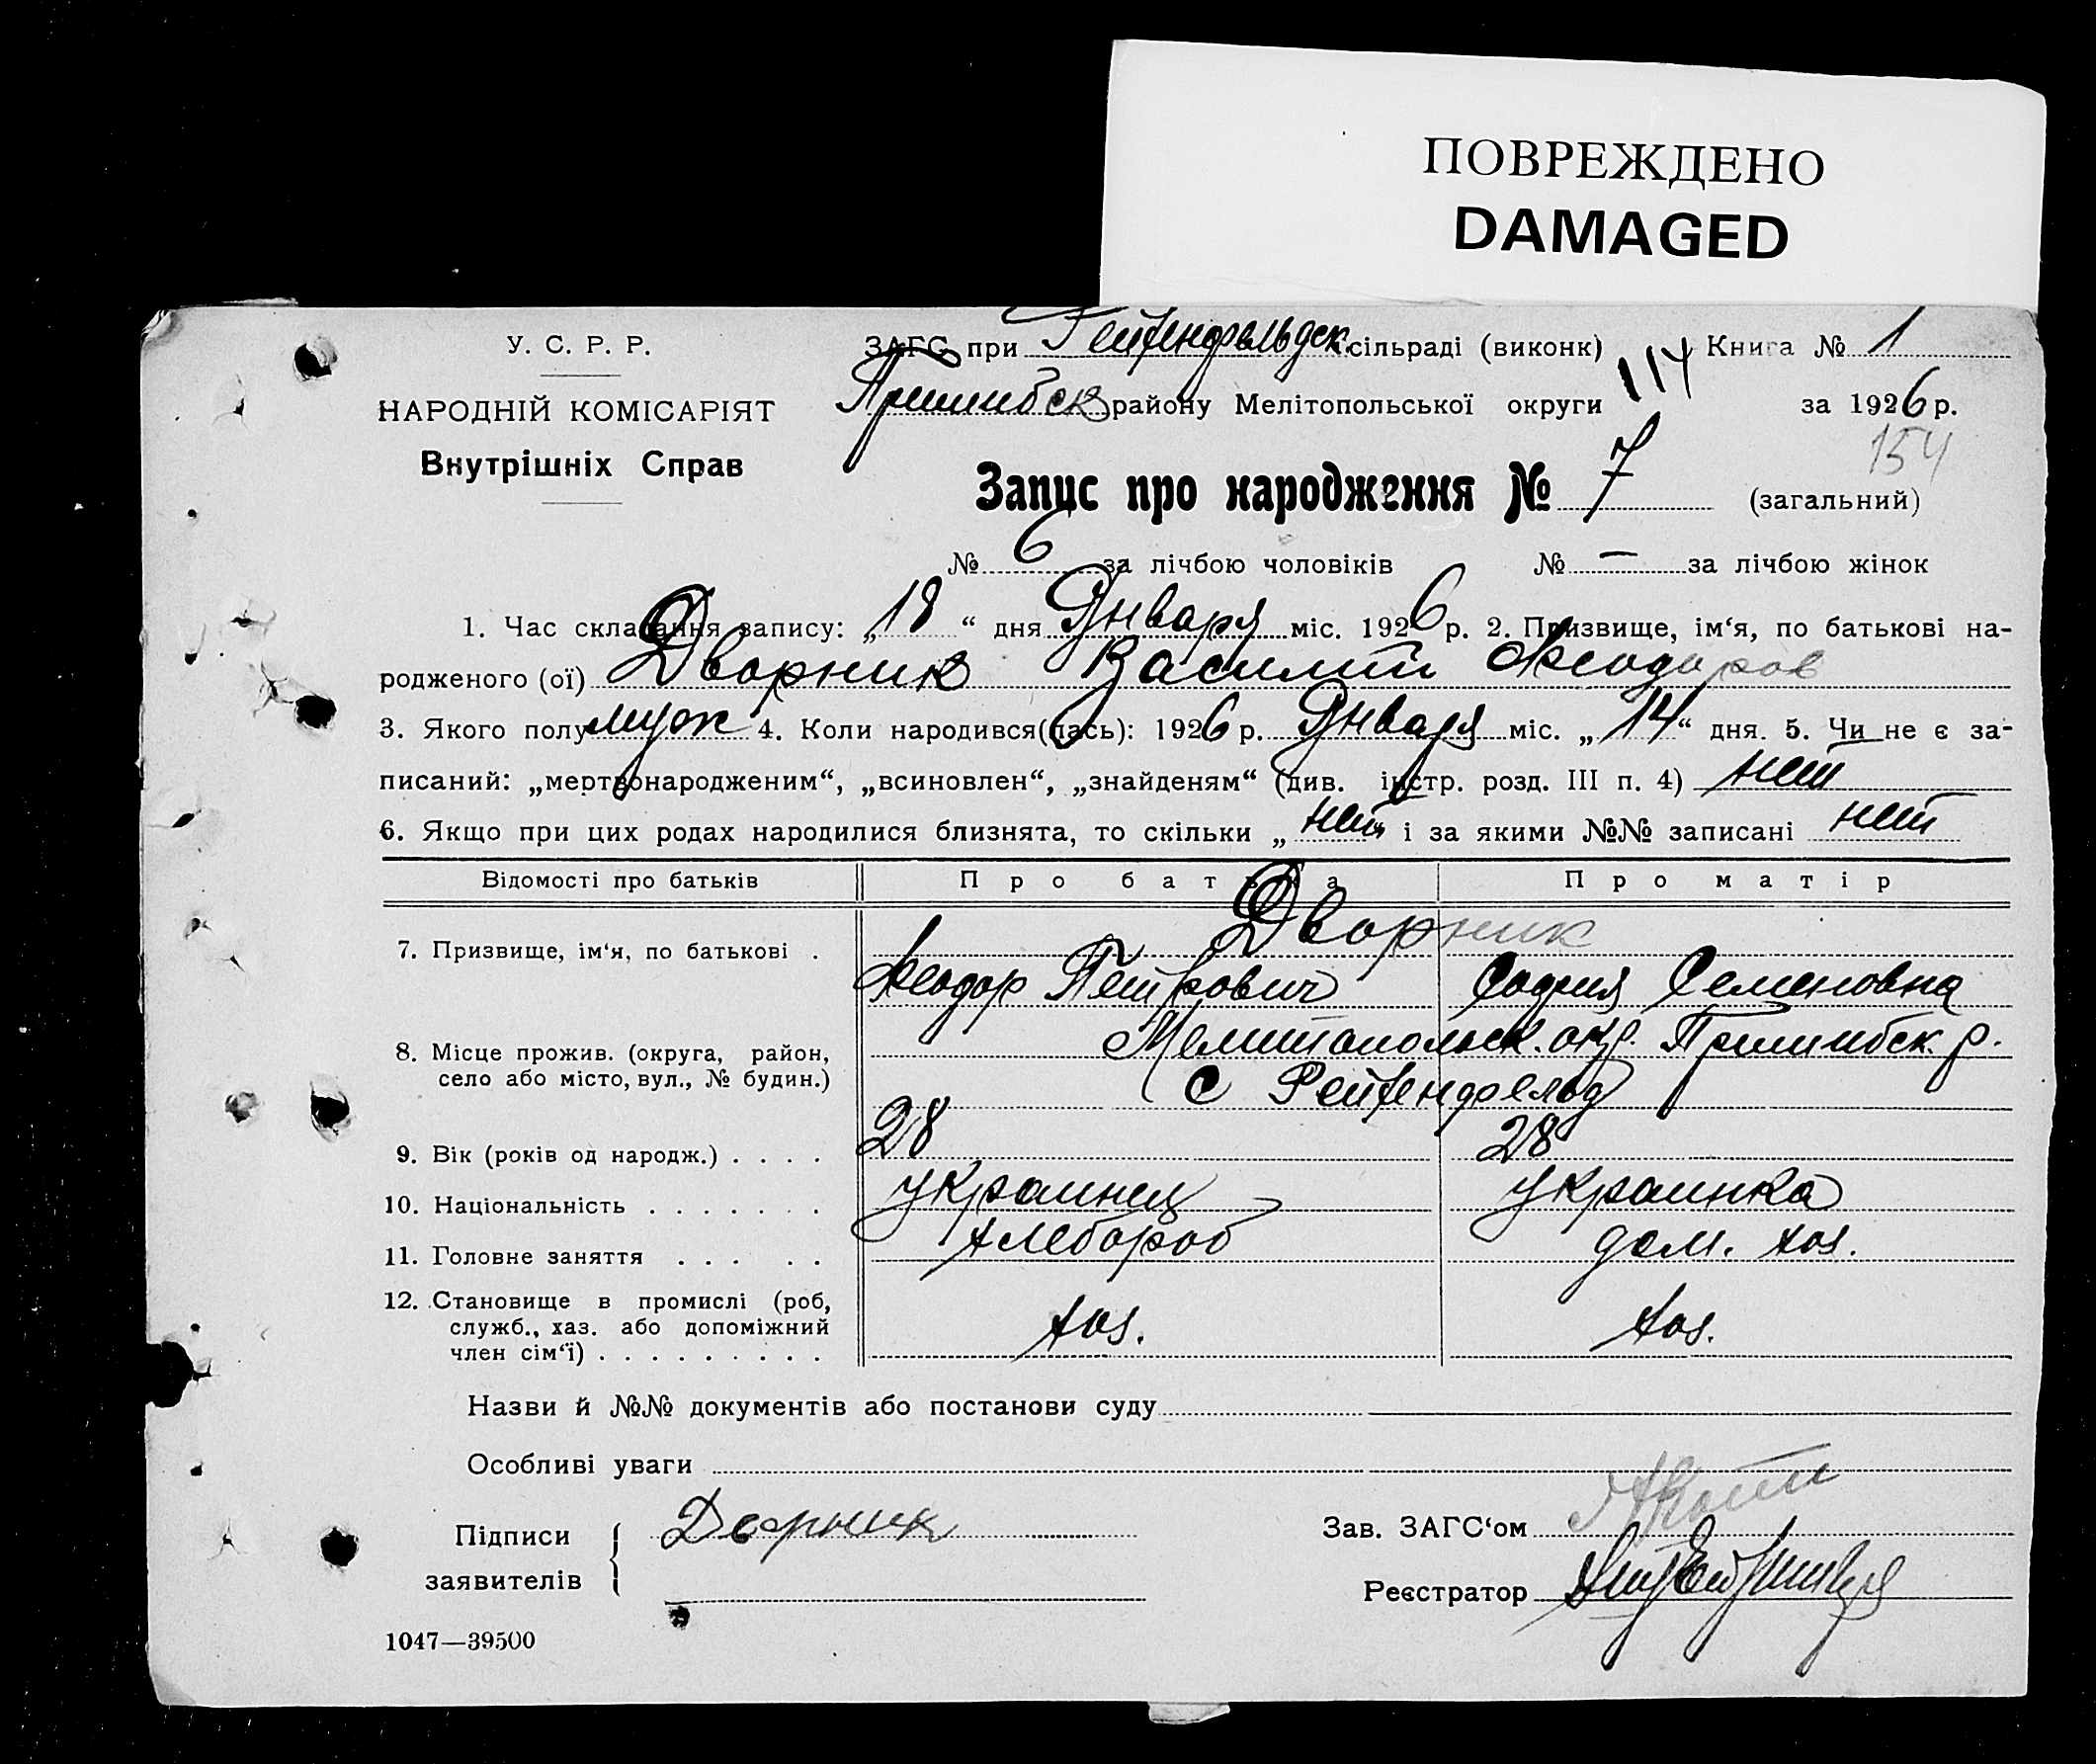 ПОВРЕЖДЕНО
DAMAGED
У. С. Р. Р.
НАРОДНІЙ КОМІСАРІЯТ
Внутрішніх Справ
ЗАГС при Рейхенфельдск. сільраді (виконк) 114 Книга № 1
Пришибск району Мелітопольської округи за 1926 р.
154
Запис про народження № 7 (загальний)
№ 6 за лічбою чоловіків № — за лічбою жінок
1. Час складання запису: „18“ дня Января міс. 1926 р. 2. Призвище, ім‘я, по батькові на-
родженого (ої) Дворник Василий Феодоров
3. Якого полу муж 4. Коли народився(лась): 1926 р. Января міс. „14“ дня. 5. Чи не є за-
писаний: „мертвонародженим“, „всиновлен“, „знайденям“ (див. інстр. розд. III п. 4) нет
6. Якщо при цих родах народилися близнята, то скільки „нет“ і за якими №№ записані нет
Відомості про батьків Про батька Про матір
Дворник
7. Призвище, ім‘я, по батькові . Феодор Петрович София Семеновна
8. Місце прожив. (округа, район, Мелитопольск. окр. Пришибск. р.
село або місто, вул., № будин.) с Рейхенфельд
9. Вік (років од народж.) . . . . 28 28
10. Національність . . . . . . . украинец украинка
11. Головне заняття . . . . . хлебороб дом. хоз.
12. Становище в промислі (роб,
служб., хаз. або допоміжний хоз. хоз.
член сім‘ї) . . . . . . . . .
Назви й №№ документів або постанови суду
Особливі уваги
Підписи Дворник Зав. ЗАГС‘ом
заявителів Реєстратор
1047—39500